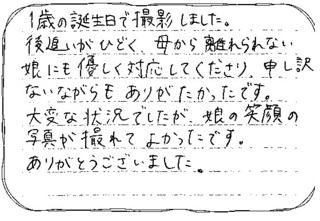 1歳の誕生日で撮影しました。
後追いがひどく、母から離れられない
娘にも優しく対応してくださり、申し訳
ないながらもありがたかったです。
大変な状況でしたが、娘の笑顔の
写真が撮れてよかったです。
ありがとうございました。